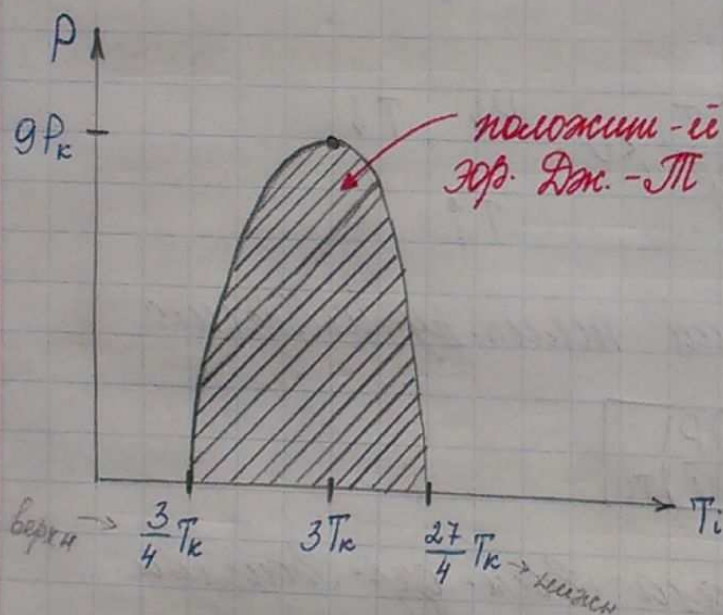 P
9Pк
положит-й
эф. Дж.-Т
верхн → 3/4 Tк
3Tк
27/4 Tк → нижн
Ti